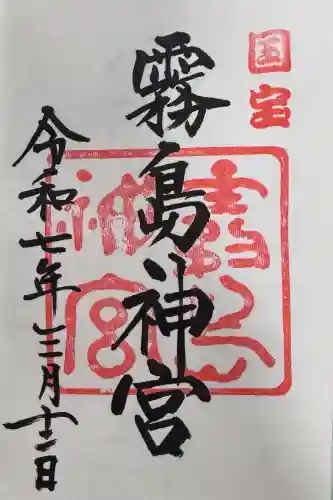 国宝
霧島神宮
令和七年三月十二日
霧島
神宮